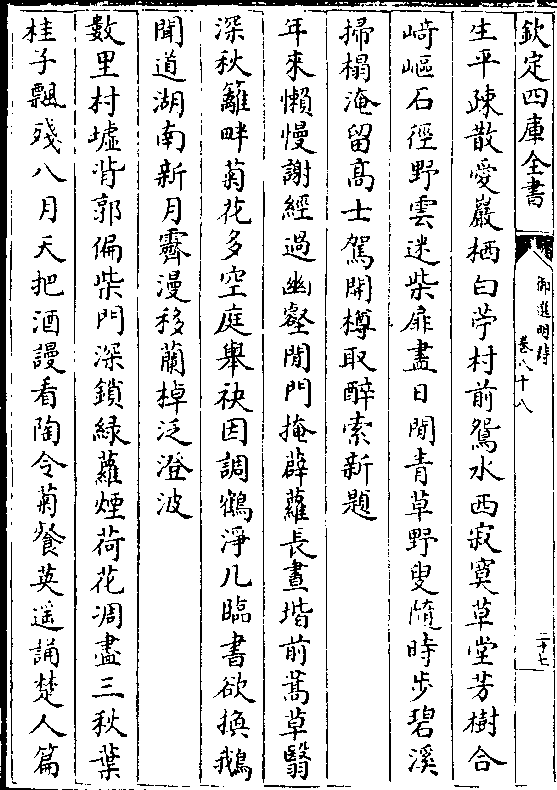 欽定四庫全書
御選明詩
卷八十八
二十七
生平疎散愛巖栖白苧村前鴛水西寂寞草堂芳樹合
﨑嶇石徑野雲迷柴扉盡日閒青草野叟隨時步碧溪
掃榻淹留髙士駕開樽取醉索新題
年來懶慢謝經過幽壑閒門掩薜蘿長晝堦前蒿草翳
深秋籬畔菊花多空庭舉袂因調鶴淨几臨書欲換鵝
聞道湖南新月霽漫移蘭棹泛澄波
數里村墟背郭偏柴門深鎖緑蘿煙荷花凋盡三秋葉
桂子飄殘八月天把酒謾看陶令菊餐英遥誦楚人篇